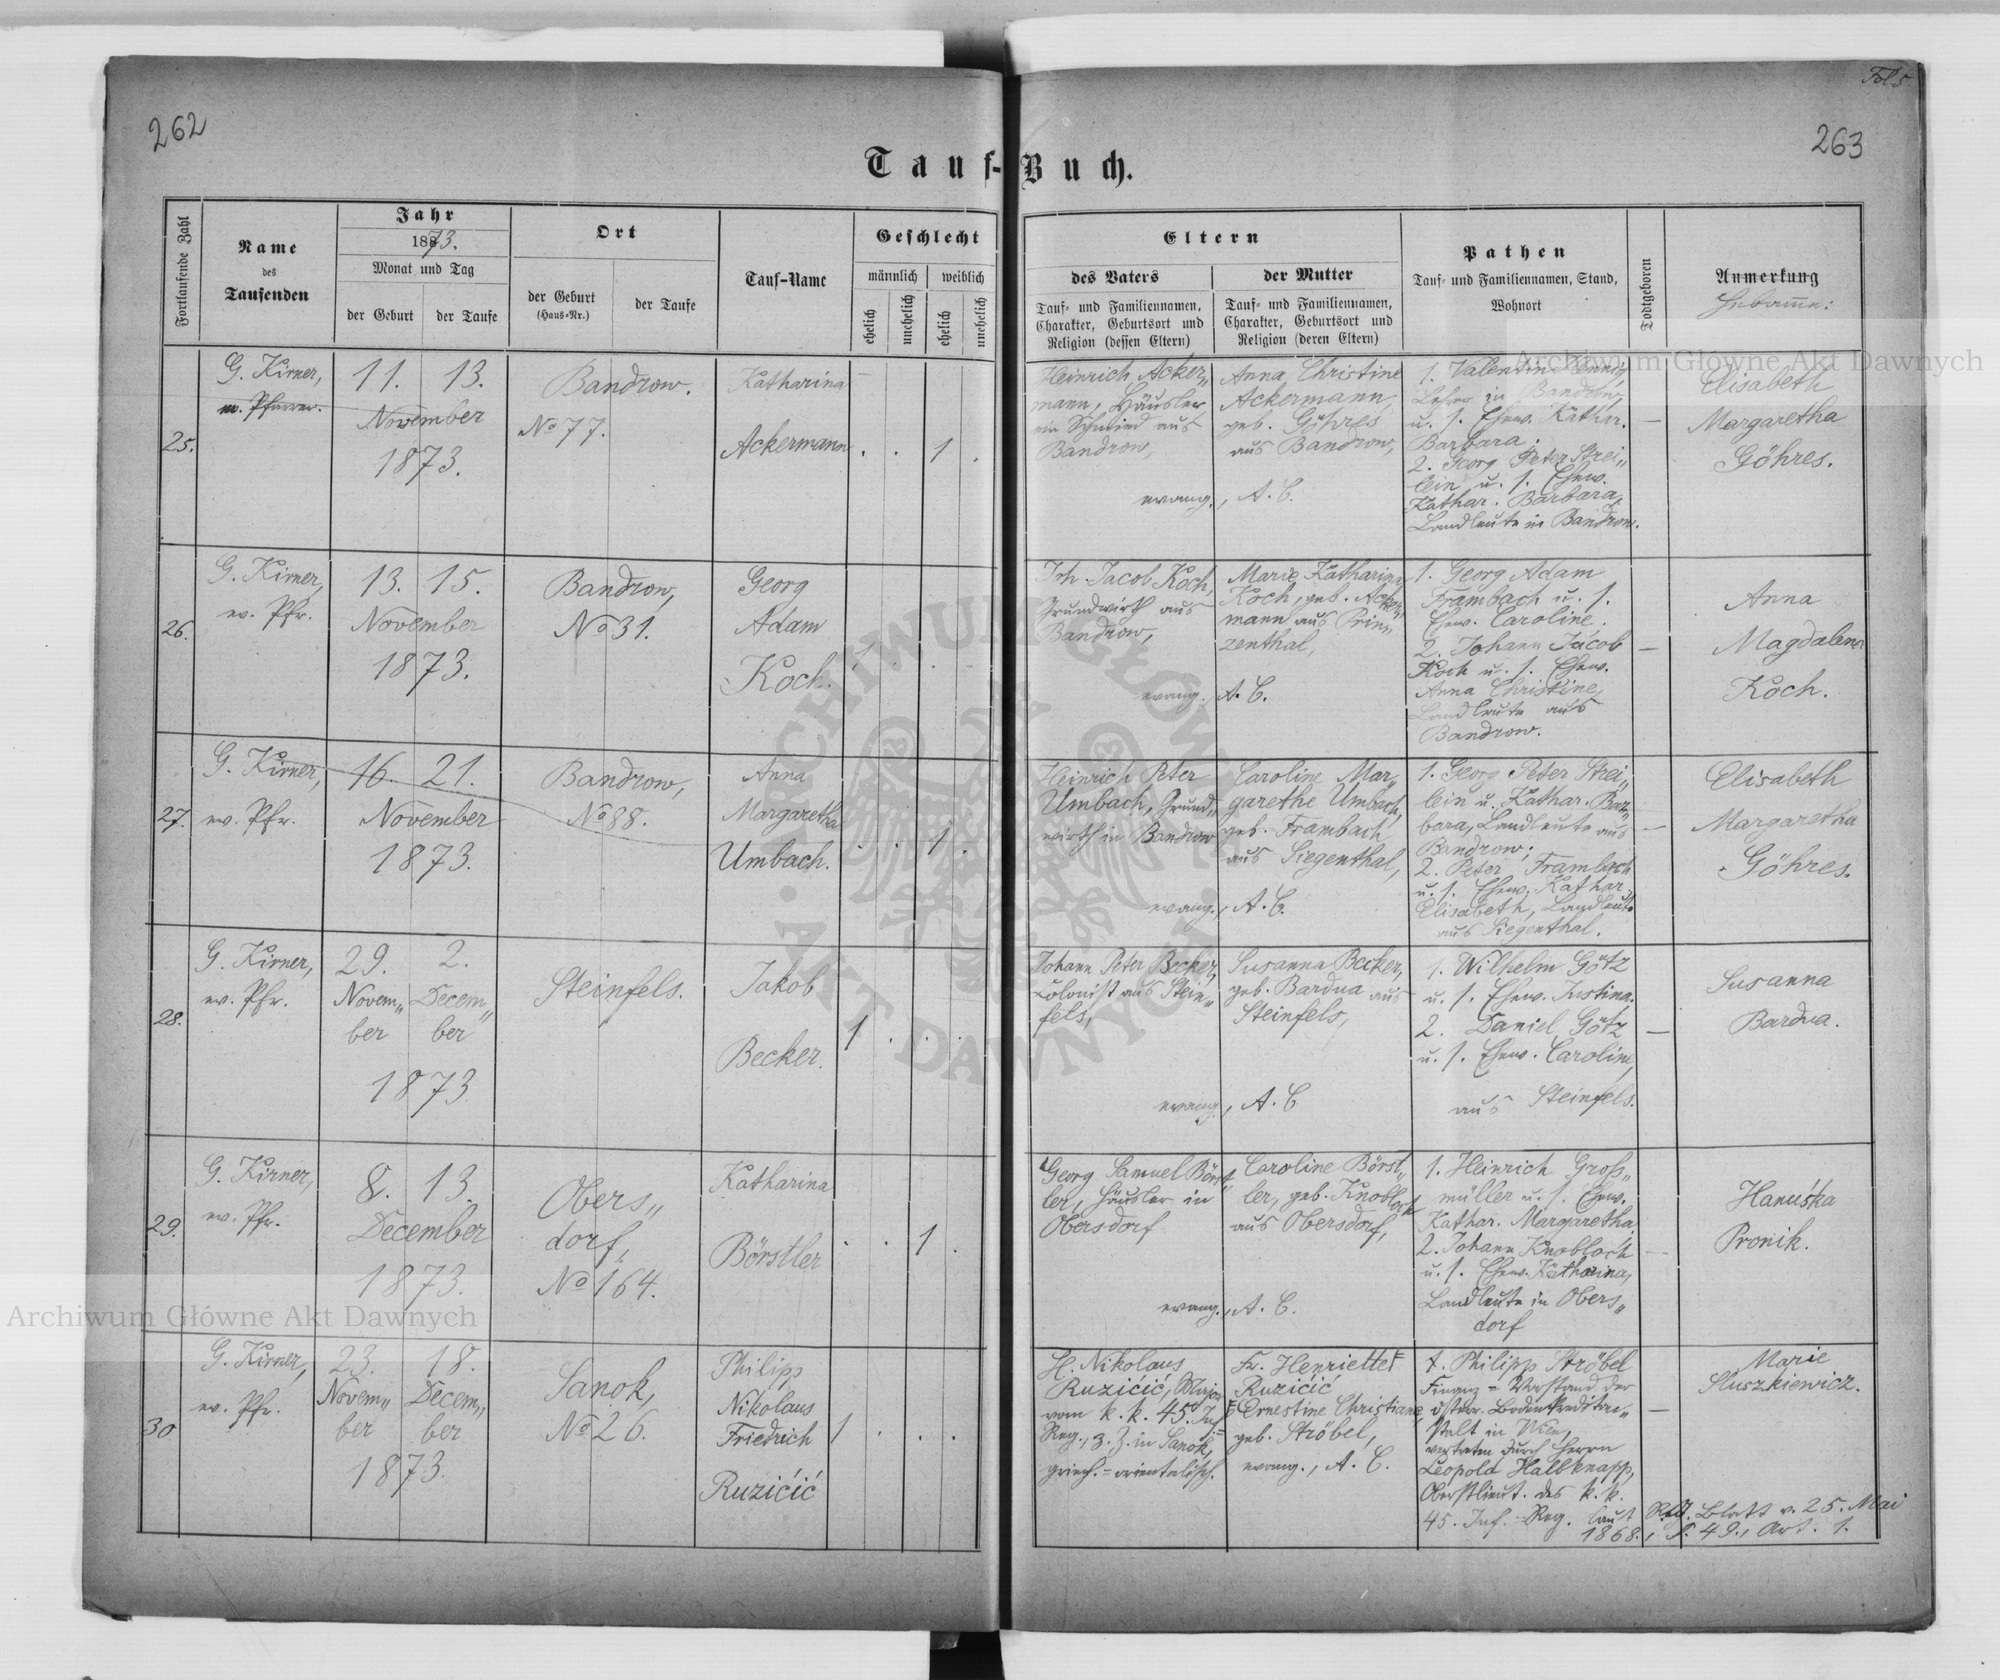 262
Fol 5.
263
Tauf-Buch.
Fortlaufende Zahl
Name
des
Taufenden
Jahr
1873.
Monat und Tag
der Geburt
der Taufe
Ort
der Geburt
(Haus-Nr.)
der Taufe
Tauf-Name
Geschlecht
männlich
weiblich
ehelich
unehelich
ehelich
unehelich
Eltern
des Vaters
Tauf- und Familiennamen,
Charakter, Geburtsort und
Religion (dessen Eltern)
der Mutter
Tauf- und Familiennamen,
Charakter, Geburtsort und
Religion (deren Eltern)
Pathen
Tauf- und Familiennamen, Stand,
Wohnort
Todtgeboren
Anmerkung
Hebamme:
25.
G. Kirner,
ev. Pfarrer.
11. 13.
November
1873.
Bandrow.
No 77.
Katharina
Ackermann
. . 1 .
Heinrich Acker„
mann, Häusler
ein Schmied aus
Bandrow,
Anna Christine
Ackermann,
geb. Göhres
aus Bandrow,
evang., A. C.
1. Valentin
Lehrer in Bandrow,
u. s. Ehew. Kathar.
Barbara.
2. Georg Peter Strei„
lein u. s. Ehew.
Kathar. Barbara,
Landleute in Bandrow.
—
Elisabeth
Margaretha
Göhres.
26.
G. Kirner,
ev. Pfr.
13. 15.
November
1873.
Bandrow,
No 31.
Georg
Adam
Koch.
1 . . .
Joh. Jacob Koch,
Grundwirth aus
Bandrow,
Marie Katharina
Koch, geb. Acker„
mann aus Prin„
zenthal,
evang. A. C.
1. Georg Adam
Frambach u. s.
Ehew. Caroline.
2. Johann Jacob
Koch u. s. Ehew.
Anna Christine,
Landleute aus
Bandrow.
—
Anna
Magdalena
Koch.
27.
G. Kirner,
ev. Pfr.
16. 21.
November
1873.
Bandrow,
No 88.
Anna
Margaretha
Umbach.
. . 1 .
Heinrich Peter
Umbach, Grund„
wirth in Bandrow
Caroline Mar„
garethe Umbach,
geb. Frambach
aus Siegenthal,
evang., A. C.
1. Georg Peter Strei„
lein u. Kathar. Bar„
bara, Landleute aus
Bandrow;
2. Peter Frambach
u. s. Ehew. Kathar.
Elisabeth, Landleute
aus Siegenthal.
—
Elisabeth
Margaretha
Göhres.
28.
G. Kirner,
ev. Pfr.
29. 2.
Novem„ Decem„
ber ber
1873.
Steinfels.
Jakob
Becker.
1 . . .
Johann Peter Becker,
Colonist aus Stein„
fels,
Susanna Becker,
geb. Bardua aus
Steinfels,
evang., A. C
1. Wilhelm Götz
u. s. Ehew. Justina.
2. Daniel Götz
u. s. Ehew. Caroline,
aus Steinfels.
—
Susanna
Bardua.
29.
G. Kirner,
ev. Pfr.
8. 13.
December
1873.
Obers„
dorf,
No 164.
Katharina
Börstler
. . 1 .
Georg Samuel Börst„
ler, Häusler in
Obersdorf
Caroline Börst„
ler, geb. Knobloch
aus Obersdorf,
evang., A. C.
1. Heinrich Groß„
müller u. s. Ehew.
Kathar. Margaretha
2. Johann Knobloch
u. s. Ehew. Katharina,
Landleute in Obers„
dorf
—
Hanuśka
Pronik.
30
G. Kirner,
ev. Pfr.
23. 18.
Novem„ Decem„
ber ber
1873.
Sanok,
No 26.
Philipp
Nikolaus
Friedrich
Ruzićić
1 . . .
H. Nikolaus
Ruzićić, Major
vom k. k. 45. Inf.
Reg., z. Z. in Sanok,
griech.=orientalisch.
Fr. Henriette
Ruzićić
Ernestine Christiane,
geb. Ströbel,
evang., A. C.
1. Philipp Ströbel
Finanz=Vorstand der
österr. Bodenkreditan„
stalt in Wien,
vertreten durch Herrn
Leopold Halbknapp,
Oberstlieut. des k. k.
45. Inf.=Reg. laut R.G. Blatt v. 25. Mai
1868., S. 49., Art. 1.
—
Marie
Sluszkiewicz.
Archiwum Główne Akt Dawnych
Archiwum Główne Akt Dawnych
ARCHIWUM GŁÓWNE
AKT DAWNYCH